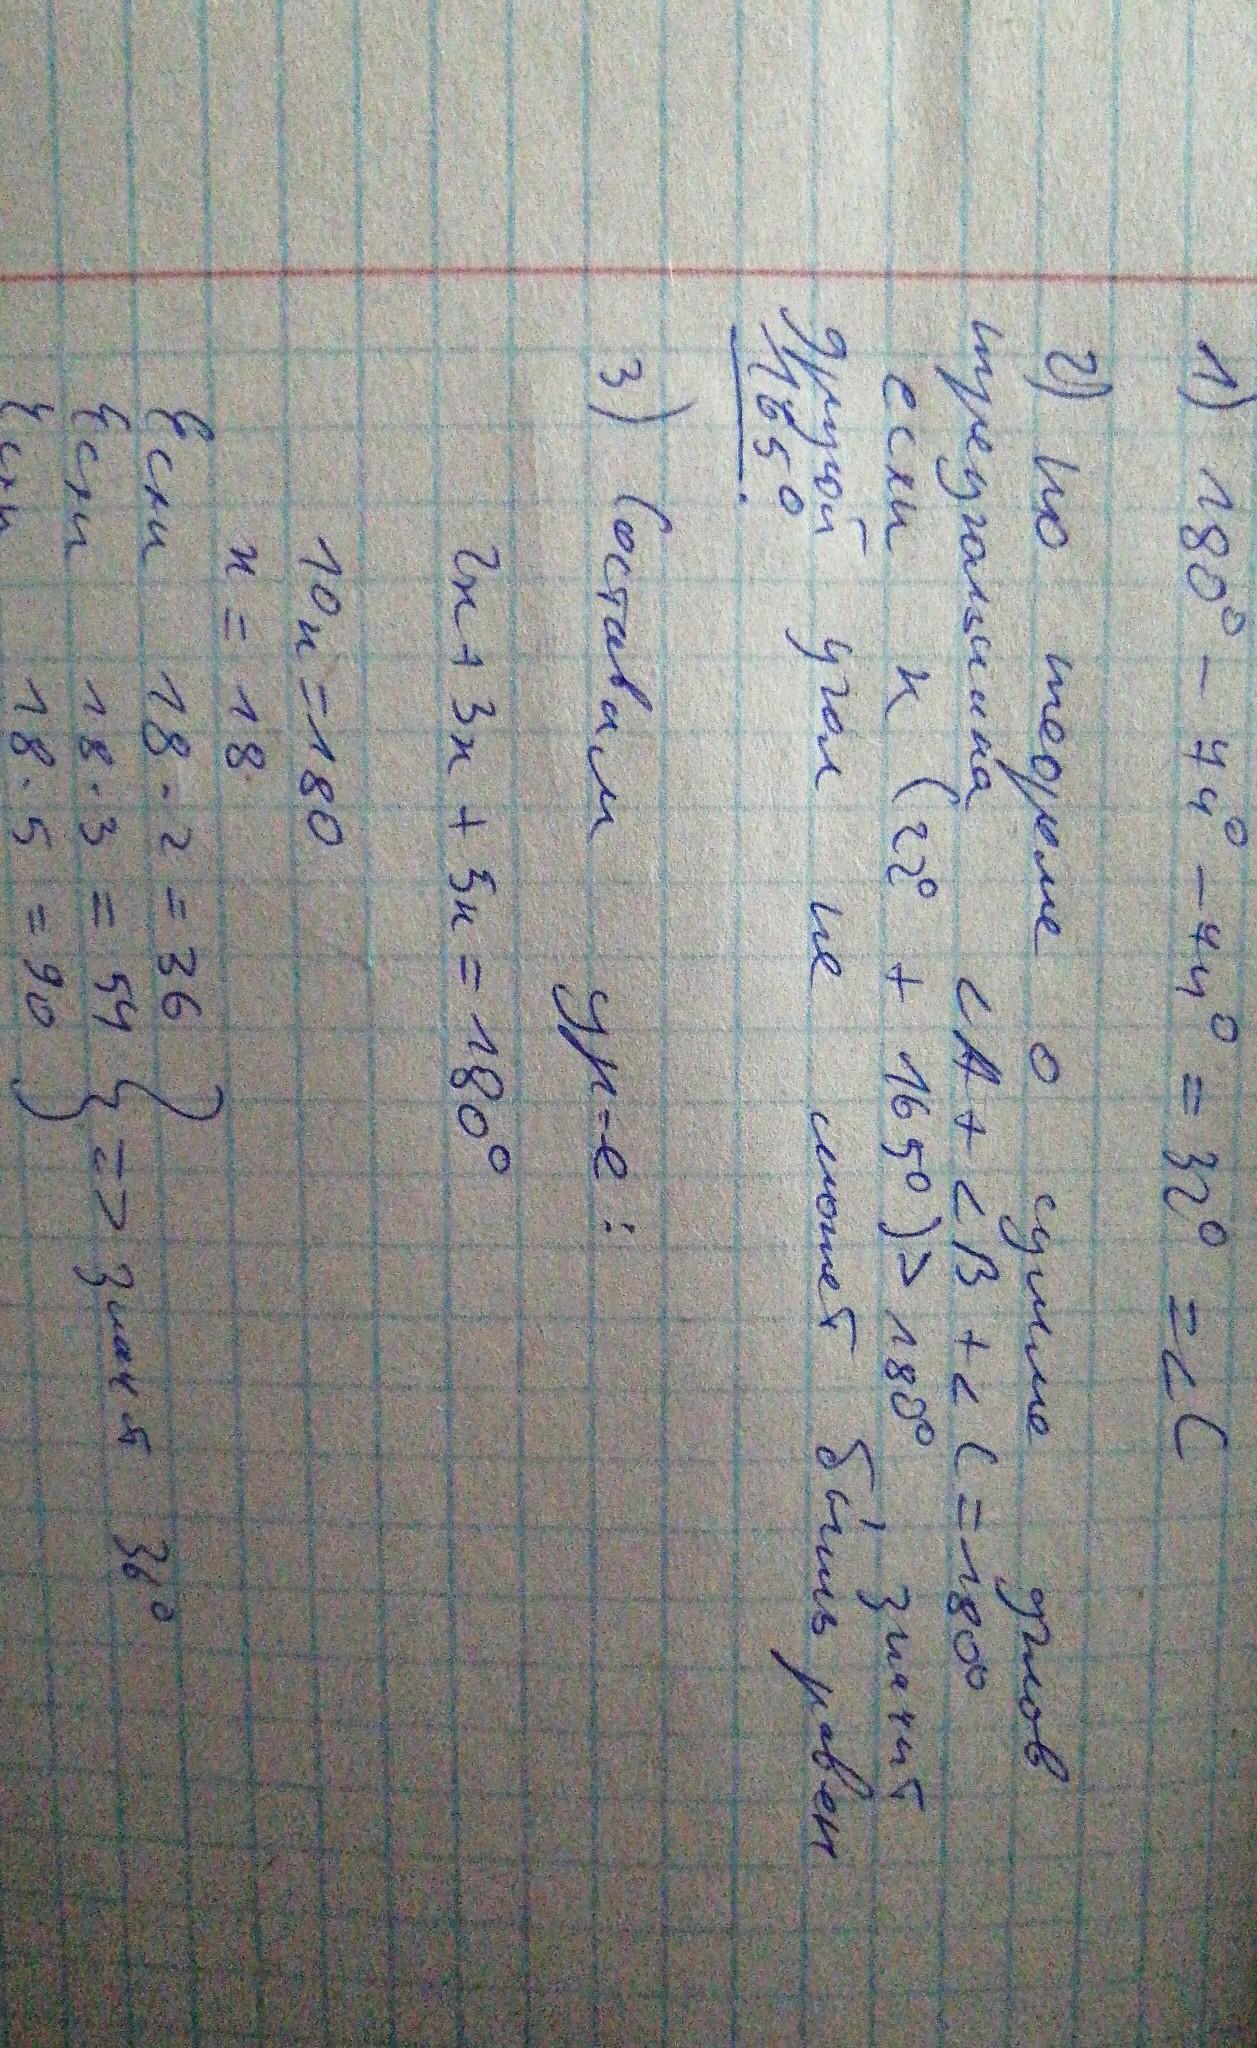 1) 180° - 74° - 74° = 32° = ∠C
2) По теореме о сумме углов
треугольника ∠A + ∠B + ∠C = 180°
если к (22° + 165°) > 180°, значит
другой угол не может быть равен
165°.
3) Составим ур-е:
2x + 3x + 5x = 180°
10x = 180
x = 18
Если 18 · 2 = 36
Если 18 · 3 = 54 } => значит 36°
Если 18 · 5 = 90